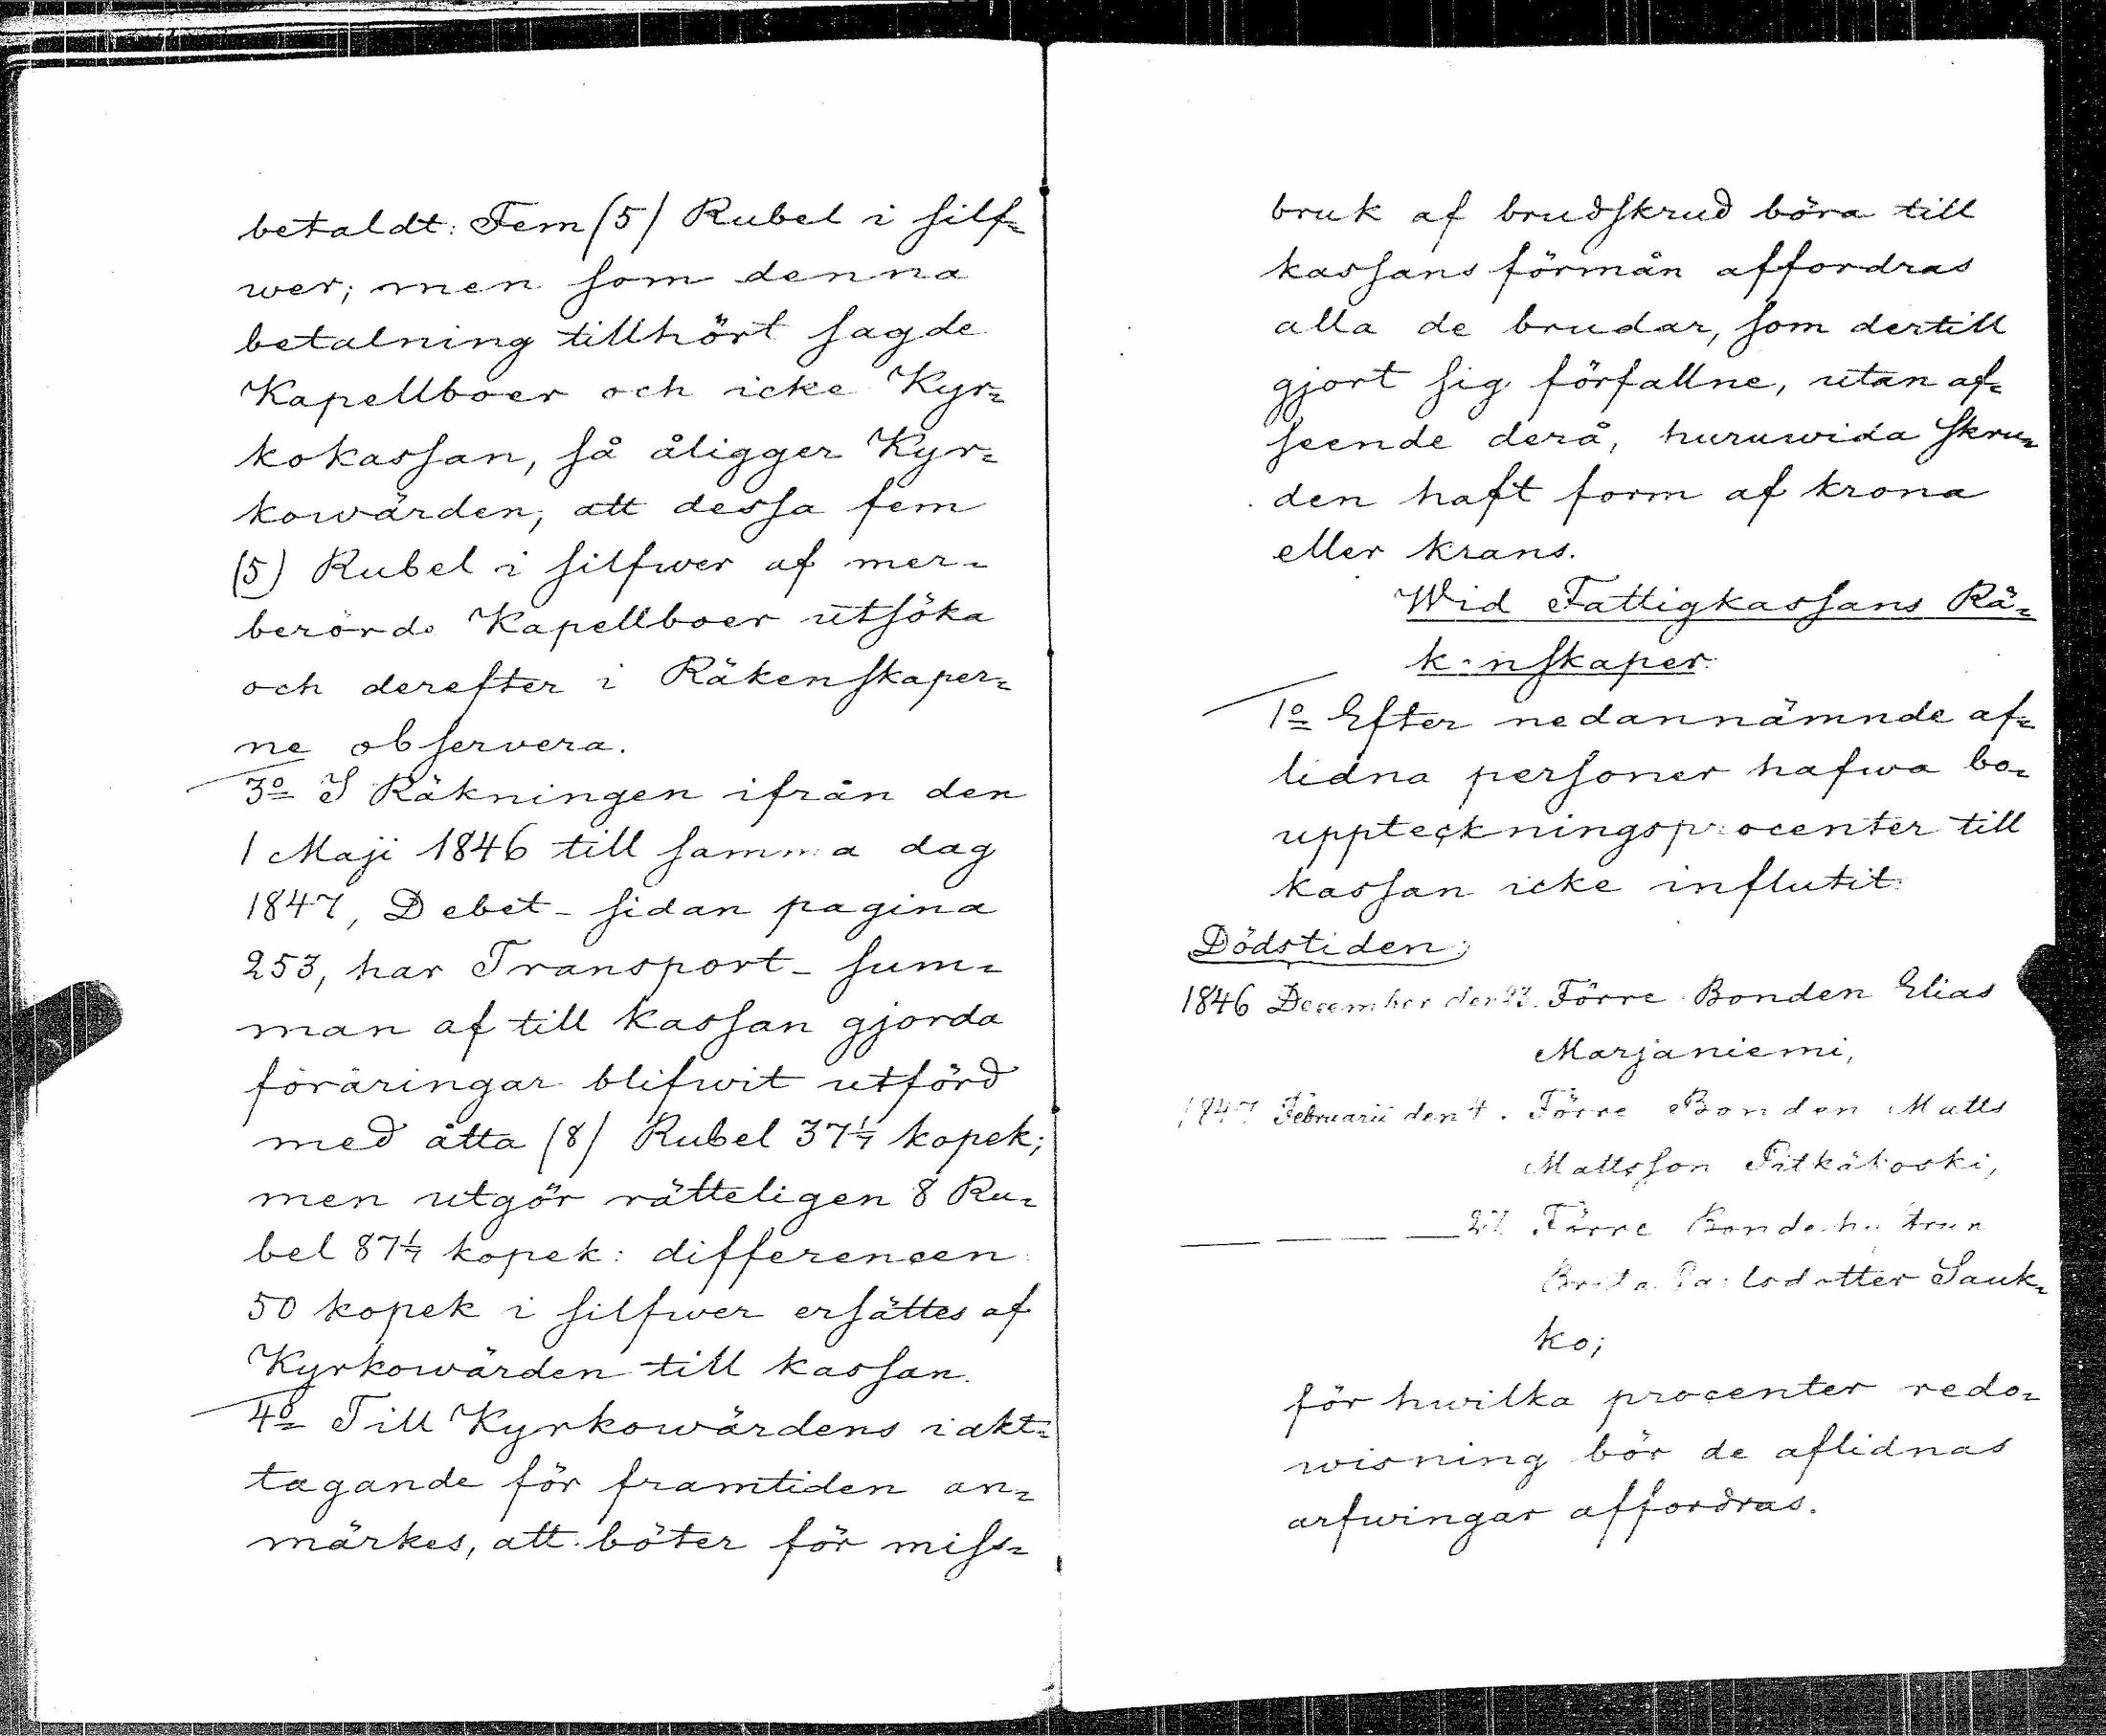 betaldt: Fem (5) Rubel i silf=
wer; men som denna
betalning tillhört sagde
Kapellboer och icke Kyr=
kokassan, så åligger Kyr=
kowärden, att dessa fem
(5) Rubel i silfwer af mer=
berörde Kapellboer utsöka
och derefter i Räkenskaper=
ne observera.
3o I Räkningen ifrån den
1 Maji 1846 till samma dag
1847, Debet-sidan pagina
253, har Transport-sum=
man af till kassan gjorda
föräringar blifwit utförd
med åtta (8) Rubel 37 1/7 kopek;
men utgör rätteligen 8 Ru=
bel 87 1/7 kopek: differencen
50 kopek i silfwer ersättes af
Kyrkowärden till kassan.
4o Till Kyrkowärdens iakt=
tagande för framtiden an=
märkes, att böter för miss=
bruk af brudskrud böra till
kassans förmån affordras
alla de brudar, som dertill
gjort sig förfallne, utan af=
seende derå, huruwida skru=
den haft form af krona
eller krans.
Wid Fattigkassans Rä=
kenskaper.
1o Efter nedannämnde af=
lidna personer hafwa bo=
uppteckningsprocenter till
kassan icke influtit:
Dödstiden;
1846 December den 23. Förre Bonden Elias
Marjaniemi,
1847 Februarii den 4. Förre Bonden Matts
Mattsson Pitkäkoski,
27 Förre Bondehustrun
Brita Palsdotter Sauk=
ko;
för hwilka procenter redo=
wisning bör de aflidnas
arfwingar affordras.